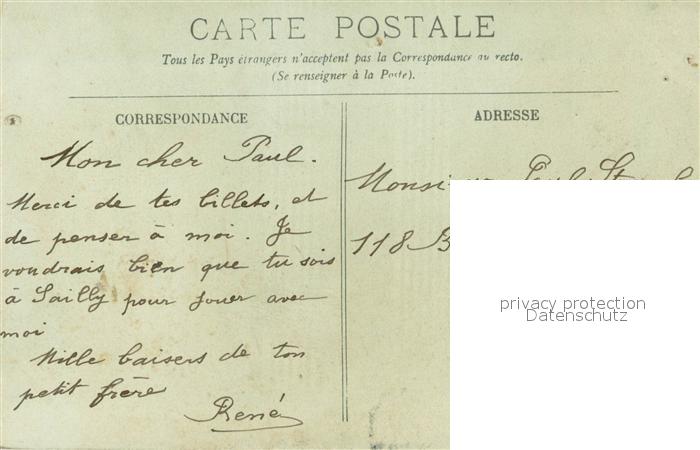 CARTE POSTALE
Tous les Pays étrangers n'acceptent pas la Correspondance au recto.
(Se renseigner à la Poste).
CORRESPONDANCE
Mon cher Paul.
Merci de tes billets, et
de penser à moi. Je
voudrais bien que tu sois
à Sailly pour jouer avec
moi
Mille baisers de ton
petit frère
René
ADRESSE
Monsieur Paul
118 B
privacy protection
Datenschutz